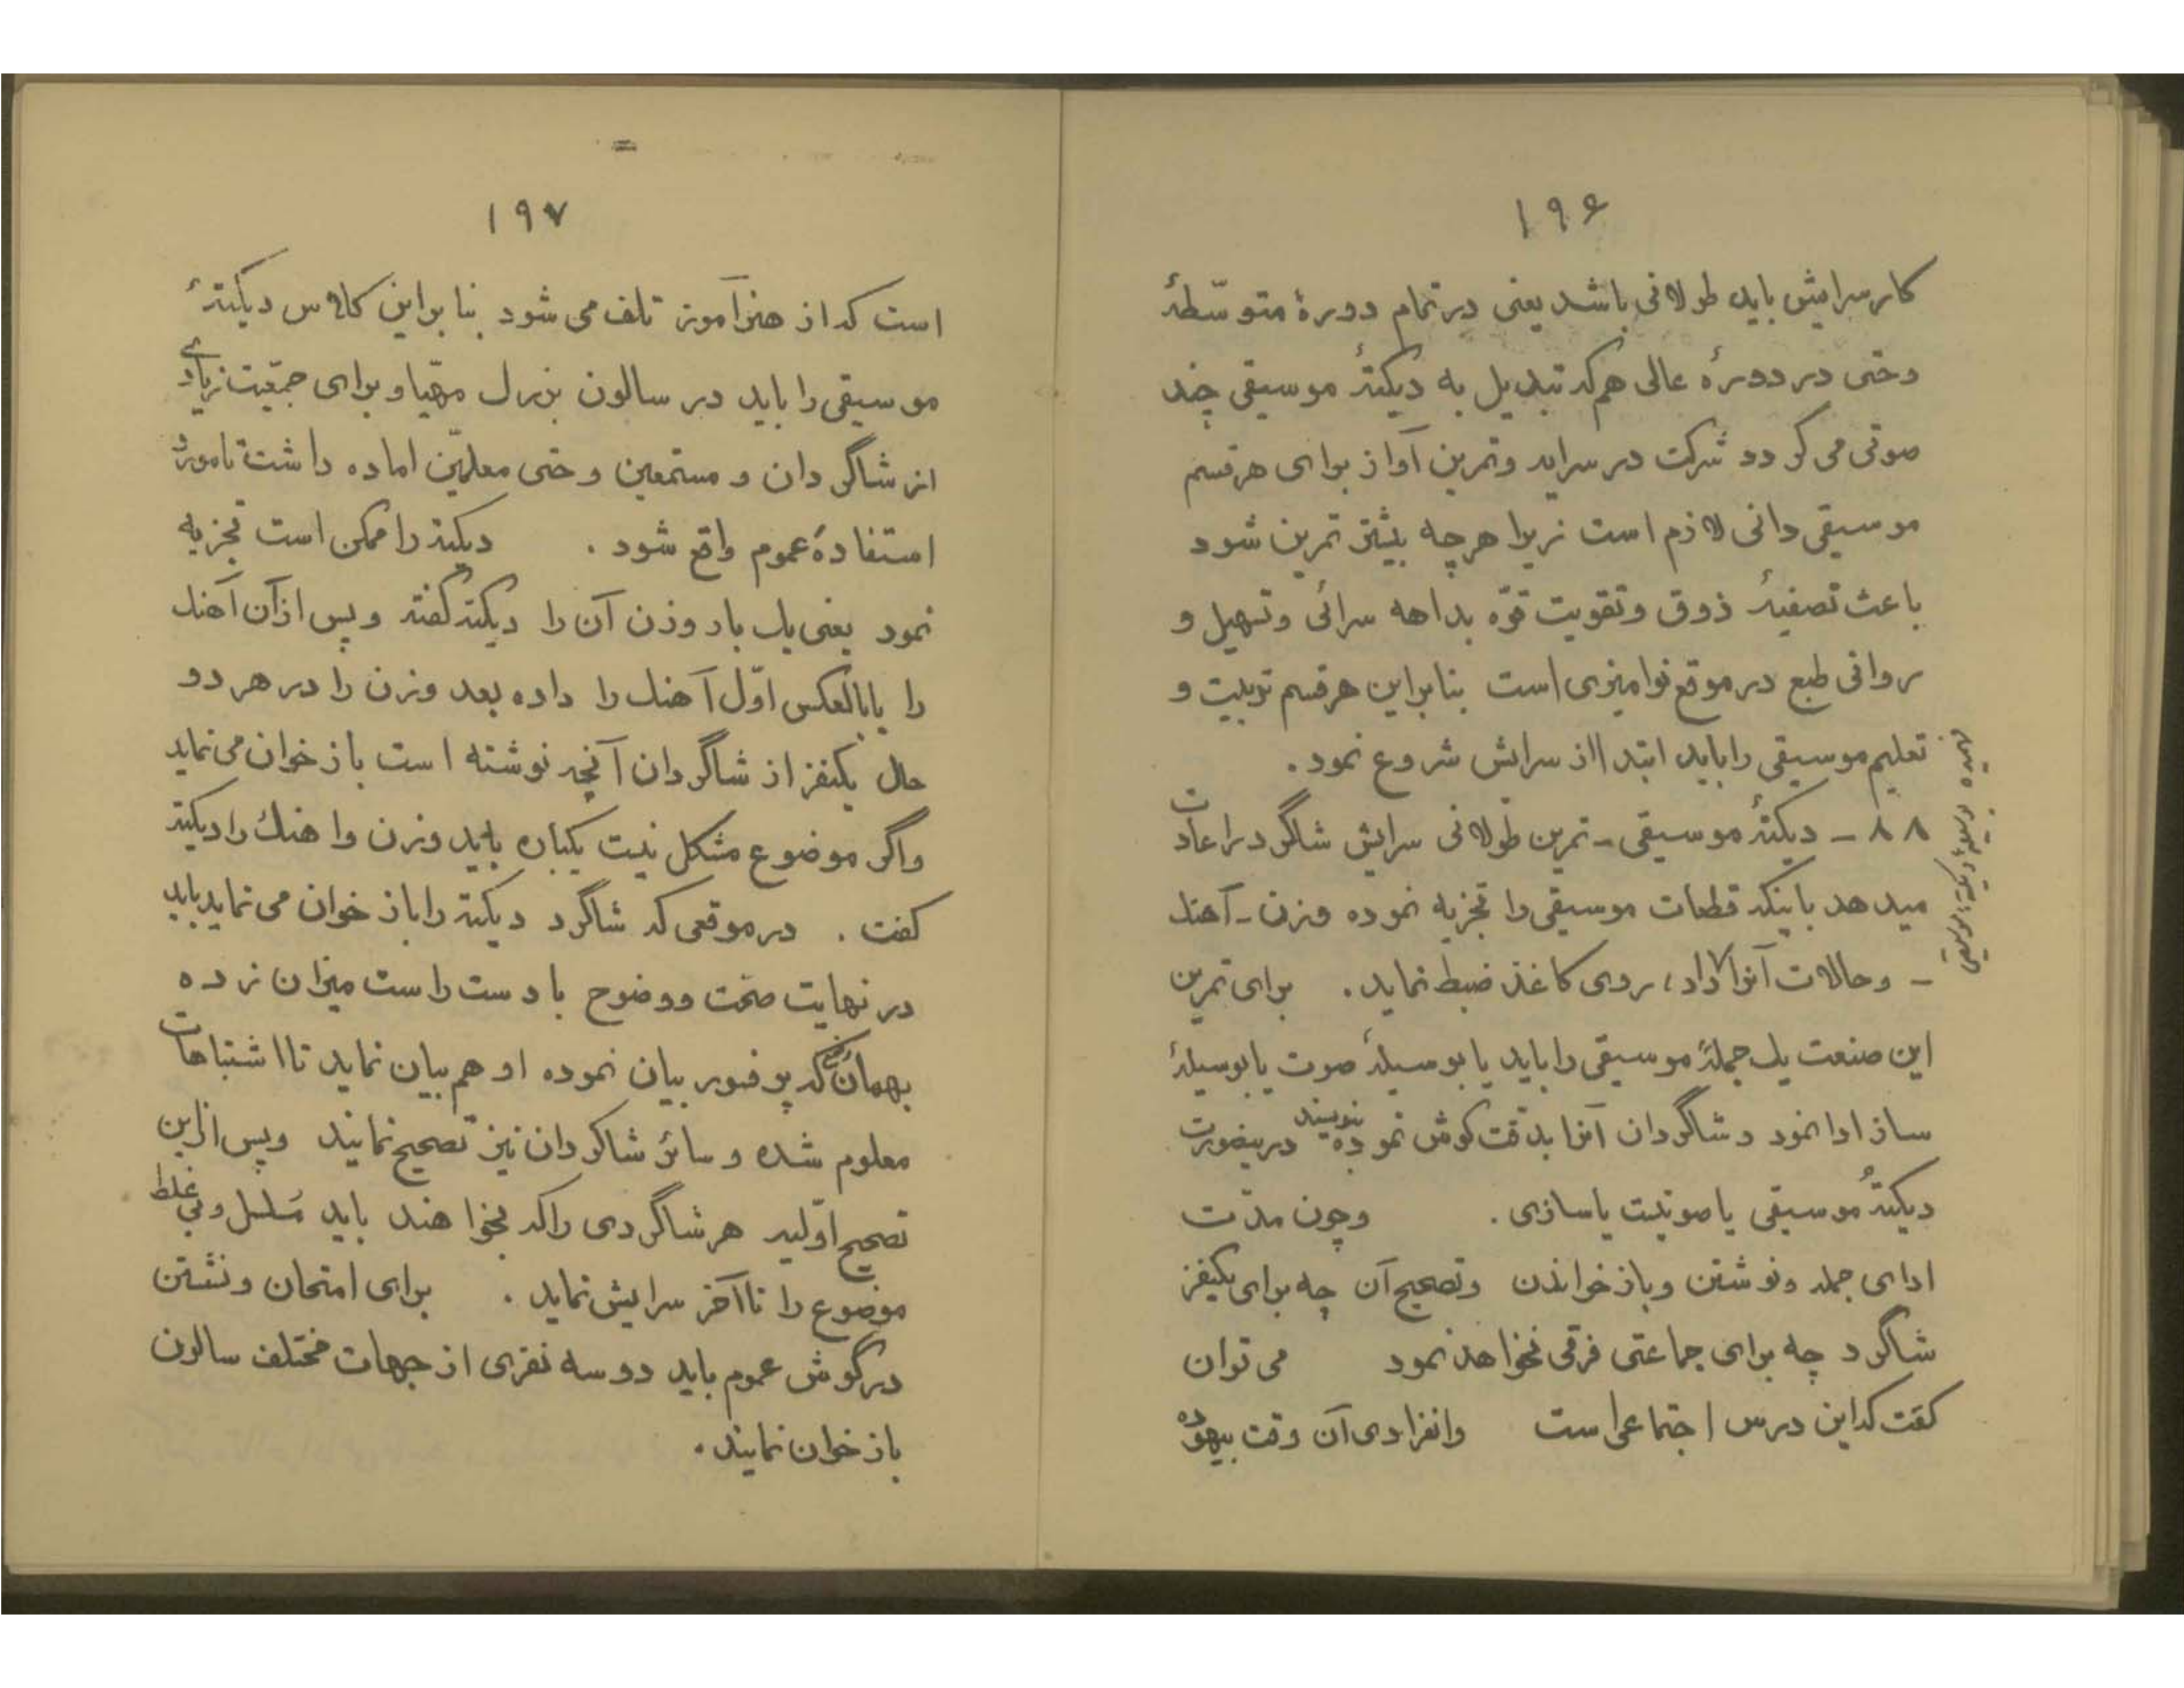 ۱۹۶
کار سرایش باید طولانی باشد یعنی در تمام دورهٔ متوسّطهٔ
وحتی در دورهٔ عالی هم که تبدیل به دیکتهٔ موسیقی چند
صوتی می گردد شرکت در سراید وتمرین آواز برای هر قسم
موسیقی دانی لازم است زیرا هرچه بیشتر تمرین شود
باعث تصفیهٔ ذوق وتقویت قوّه بداهه سرائی وتسهیل و
روانی طبع در موقع نوامیزی است بنابراین هر قسم تربیت و
تعلیم موسیقی را باید ابتدا از سرایش شروع نمود.
۸۸ - دیکتهٔ موسیقی - تمرین طولانی سرایش شاگرد را عادت
میدهد باینکه قطعات موسیقی را تجزیه نموده وزن - آهنک
- وحالات آنرا روی کاغذ ضبط نماید. برای تمرین
این صنعت یک جملهٔ موسیقی را باید یا بوسیلهٔ صوت یا بوسیلهٔ
ساز ادا نمود و شاگردان آنرا بدقت گوش نموده بنویسند درینصورت
دیکتهٔ موسیقی یا صوتیست یا سازی. وچون مدّت
ادای جمله ونوشتن وباز خواندن وتصحیح آن چه برای یکنفر
شاگرد چه برای جماعتی فرقی نخواهد نمود می توان
گفت که این درس اجتماعی است وانفرادی آن وقت بیهوده
۱۹۷
است که از هنرآموز تلف می شود بنا براین کلاس دیکتهٔ
موسیقی را باید در سالون بزرک مهیّا و برای جمعیّت زیادی
از شاگردان و مستمعین وحتی معلمّین اماده داشت تا مورد
استفادهٔ عموم واقع شود. دیکته را ممکن است تجزیه
نمود یعنی یک بار وزن آن را دیکته گفته و پس از آن آهنک
را یا بالعکس اوّل آهنک را داده بعد وزن را در هر دو
حال یکنفر از شاگردان آنچه نوشته است باز خوان می نماید
واگر موضوع مشکل نیست یکباره باید وزن واهنک را دیکته
گفت. در موقعی که شاگرد دیکته را باز خوان می نماید باید
در نهایت صحت ووضوح با دست راست میزان زده
که پرفسور بیان نموده او هم بیان نماید تا اشتباهات
معلوم شده و سائر شاگردان نیز تصحیح نمایند وپس از این
تصحیح اوّلیه هر شاگردی را که بخواهند باید مسلسل وبی غلط
موضوع را تا آخر سرایش نماید. برای امتحان ونشستن
در گوش عموم باید دو سه نفری از جهات مختلف سالون
باز خوان نمایند.